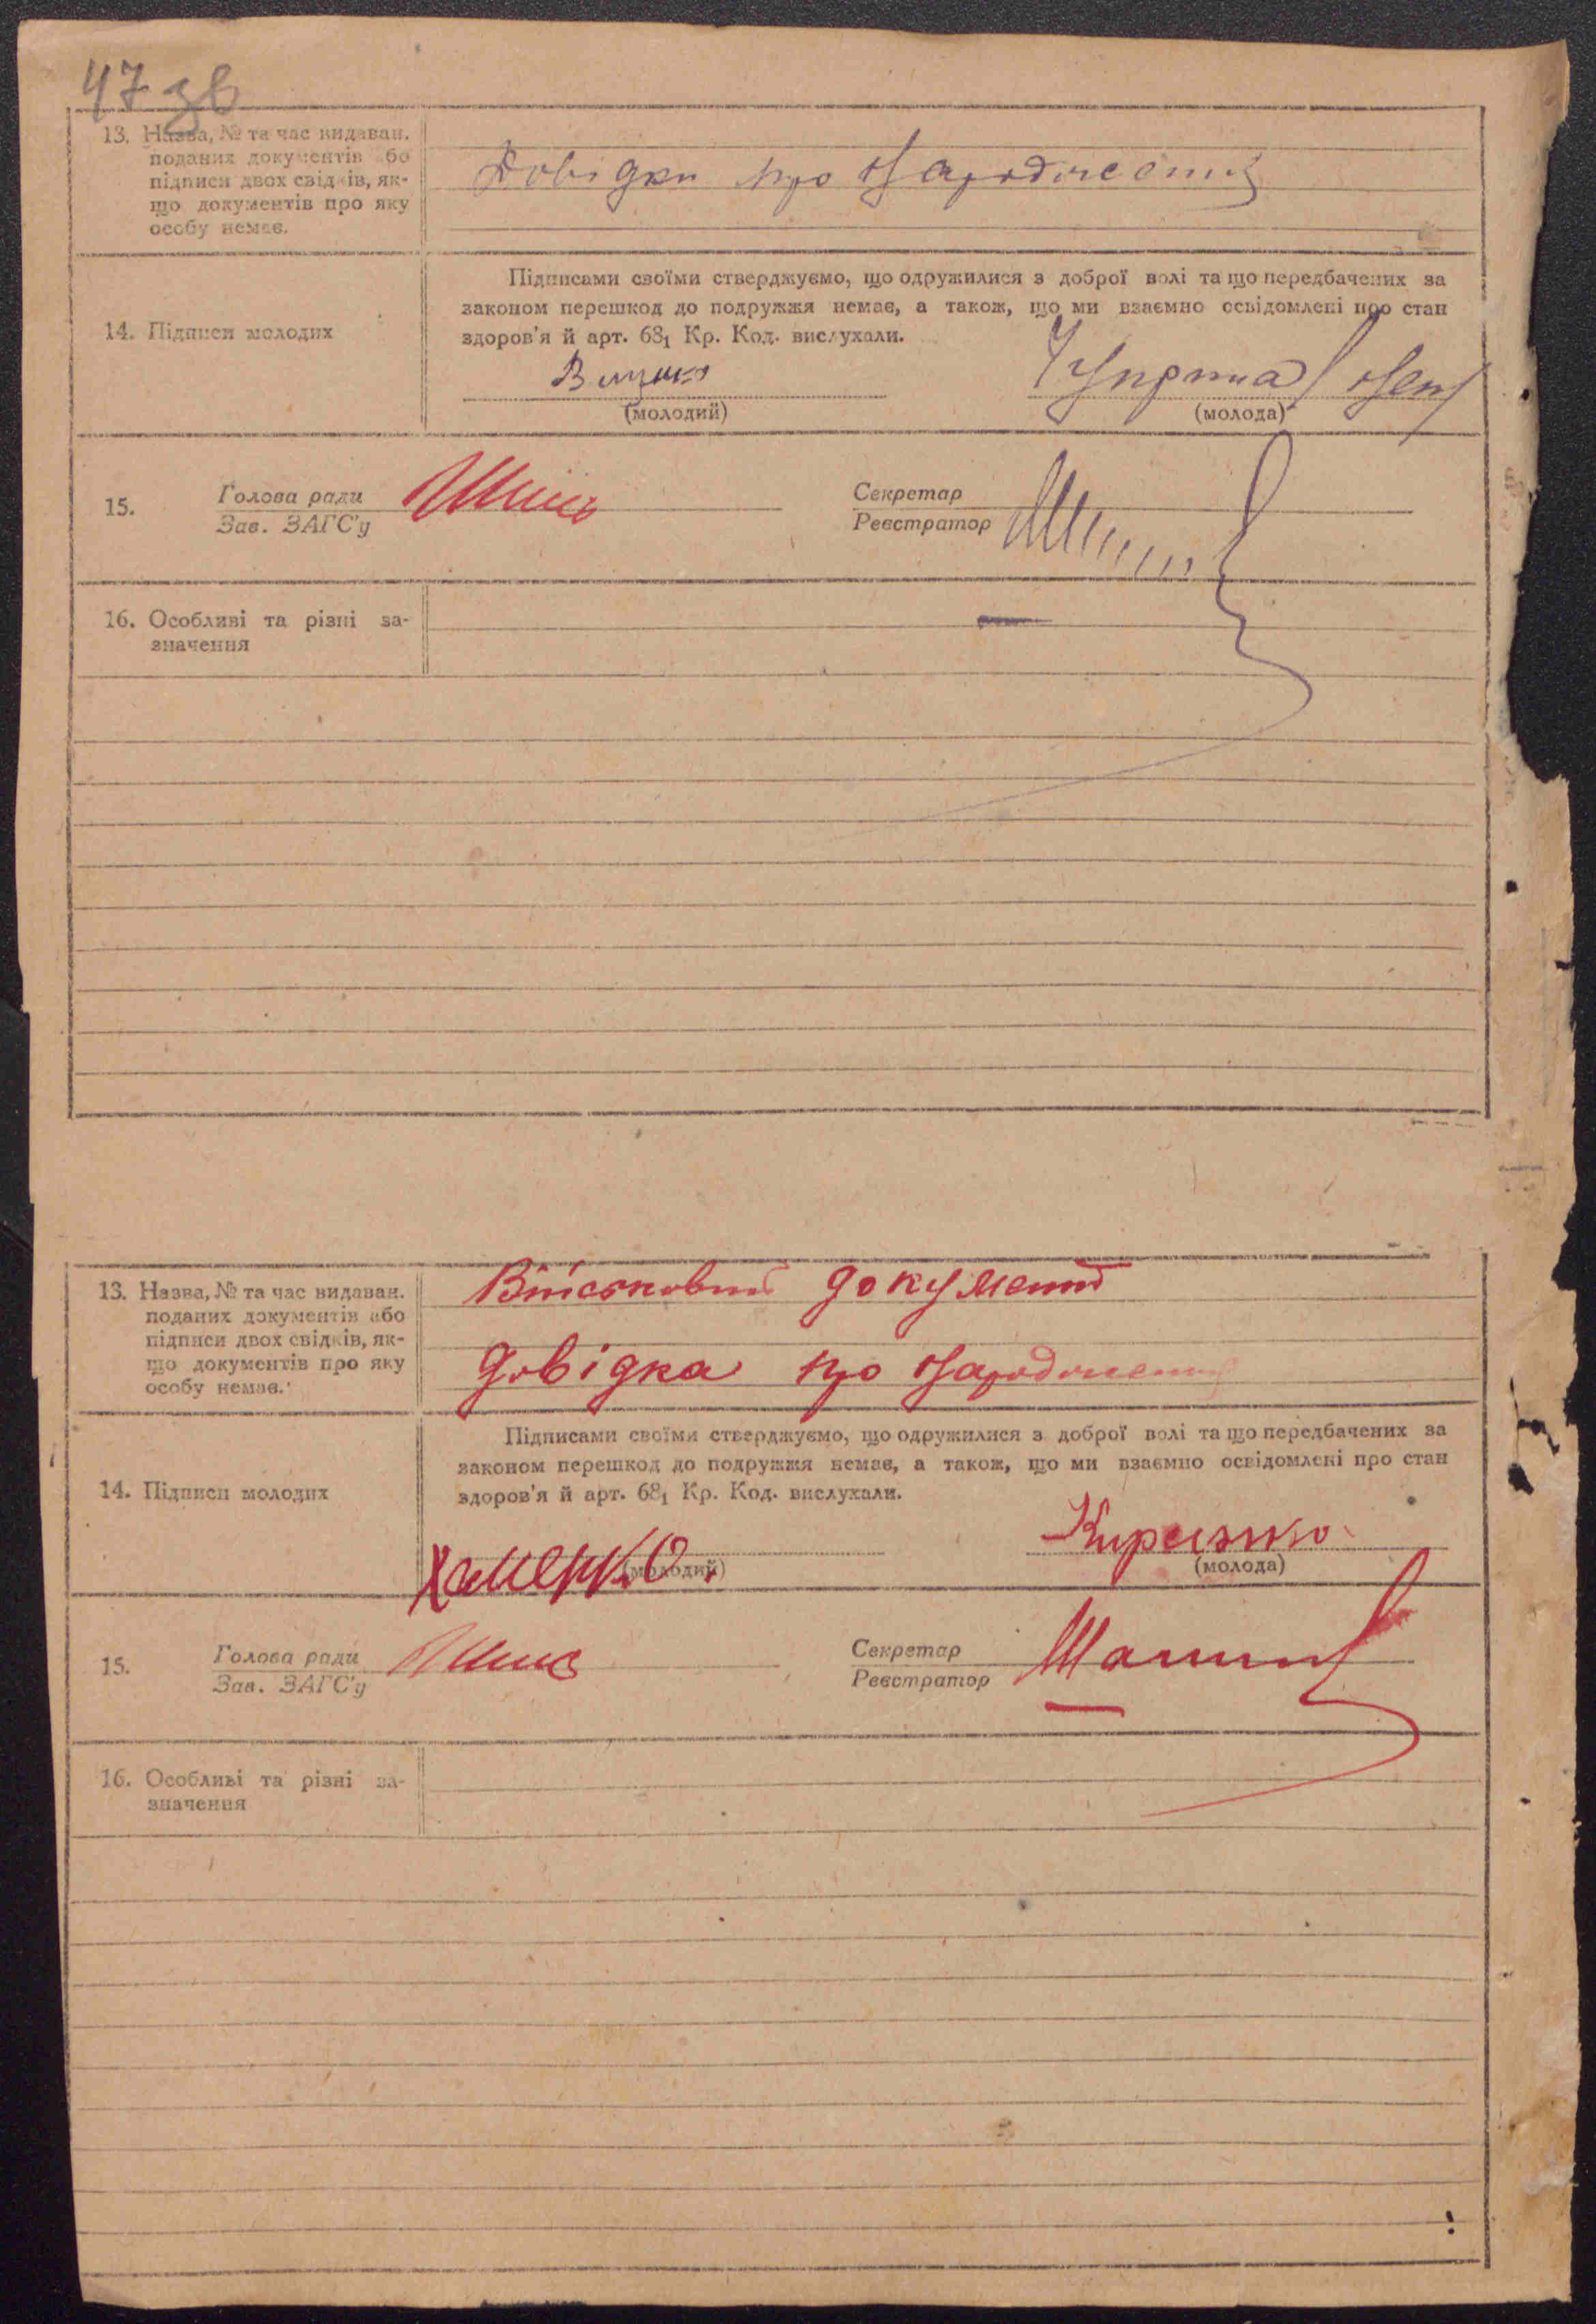 47 зв
13. Назва, № та час видаван.
поданих документів або
підписи двох свідків, як-
що документів про яку
особу немає.
Довідки про народження
14. Підписи молодих
Підписами своїми стверджуємо, що одружилися з доброї волі та що передбачених за
законом перешкод до подружжя немає, а також, що ми взаємно освідомлені про стан
здоров'я й арт. 68₁ Кр. Код. вислухали.
(молодий)
(молода)
15.
Голова ради
Зав. ЗАГС'у
Секретар
Реєстратор
16. Особливі та різні за-
значення
13. Назва, № та час видаван.
поданих документів або
підписи двох свідків, як-
що документів про яку
особу немає.
Військовий документ
довідка про народження
14. Підписи молодих
Підписами своїми стверджуємо, що одружилися з доброї волі та що передбачених за
законом перешкод до подружжя немає, а також, що ми взаємно освідомлені про стан
здоров'я й арт. 68₁ Кр. Код. вислухали.
Хоменко
(молодий)
(молода)
15.
Голова ради
Зав. ЗАГС'у
Секретар
Реєстратор
16. Особливі та різні за-
значення